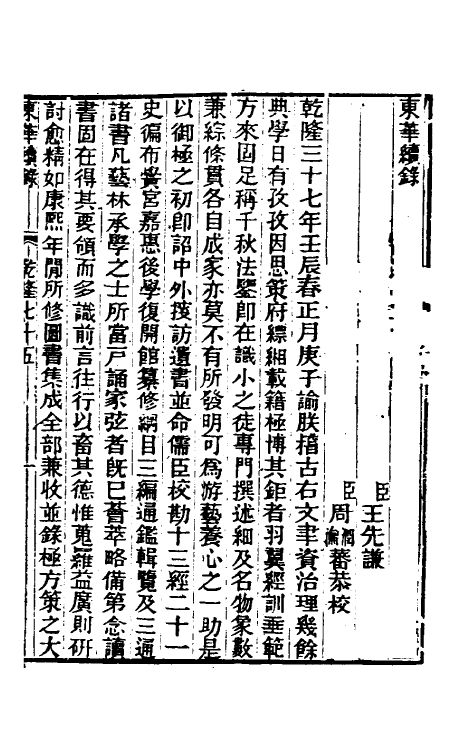 東華續錄
臣王先謙
臣周潤蕃周瀹蕃恭校
乾隆三十七年壬辰春正月庚子諭朕稽古右文聿資治理幾餘
典學日有孜孜因思策府縹緗載籍極博其鉅者羽翼經訓垂範
方來固足稱千秋法鑒即在識小之徒專門撰述細及名物象數
兼綜條貫各自成家亦莫不有所發明可為游藝養心之一助是
以御極之初即詔中外搜訪遺書並命儒臣校勘十三經二十一
史徧布黌宮嘉惠後學復開館纂修綱目三編通鑑輯覽及三通
諸書凡藝林承學之士所當戶誦家弦者既已薈萃略備第念讀
書固在得其要領而多識前言往行以畜其德惟蒐羅益廣則研
討愈精如康熙年間所修圖書集成全部兼收並錄極方策之大
東華續錄 乾隆七十五 一